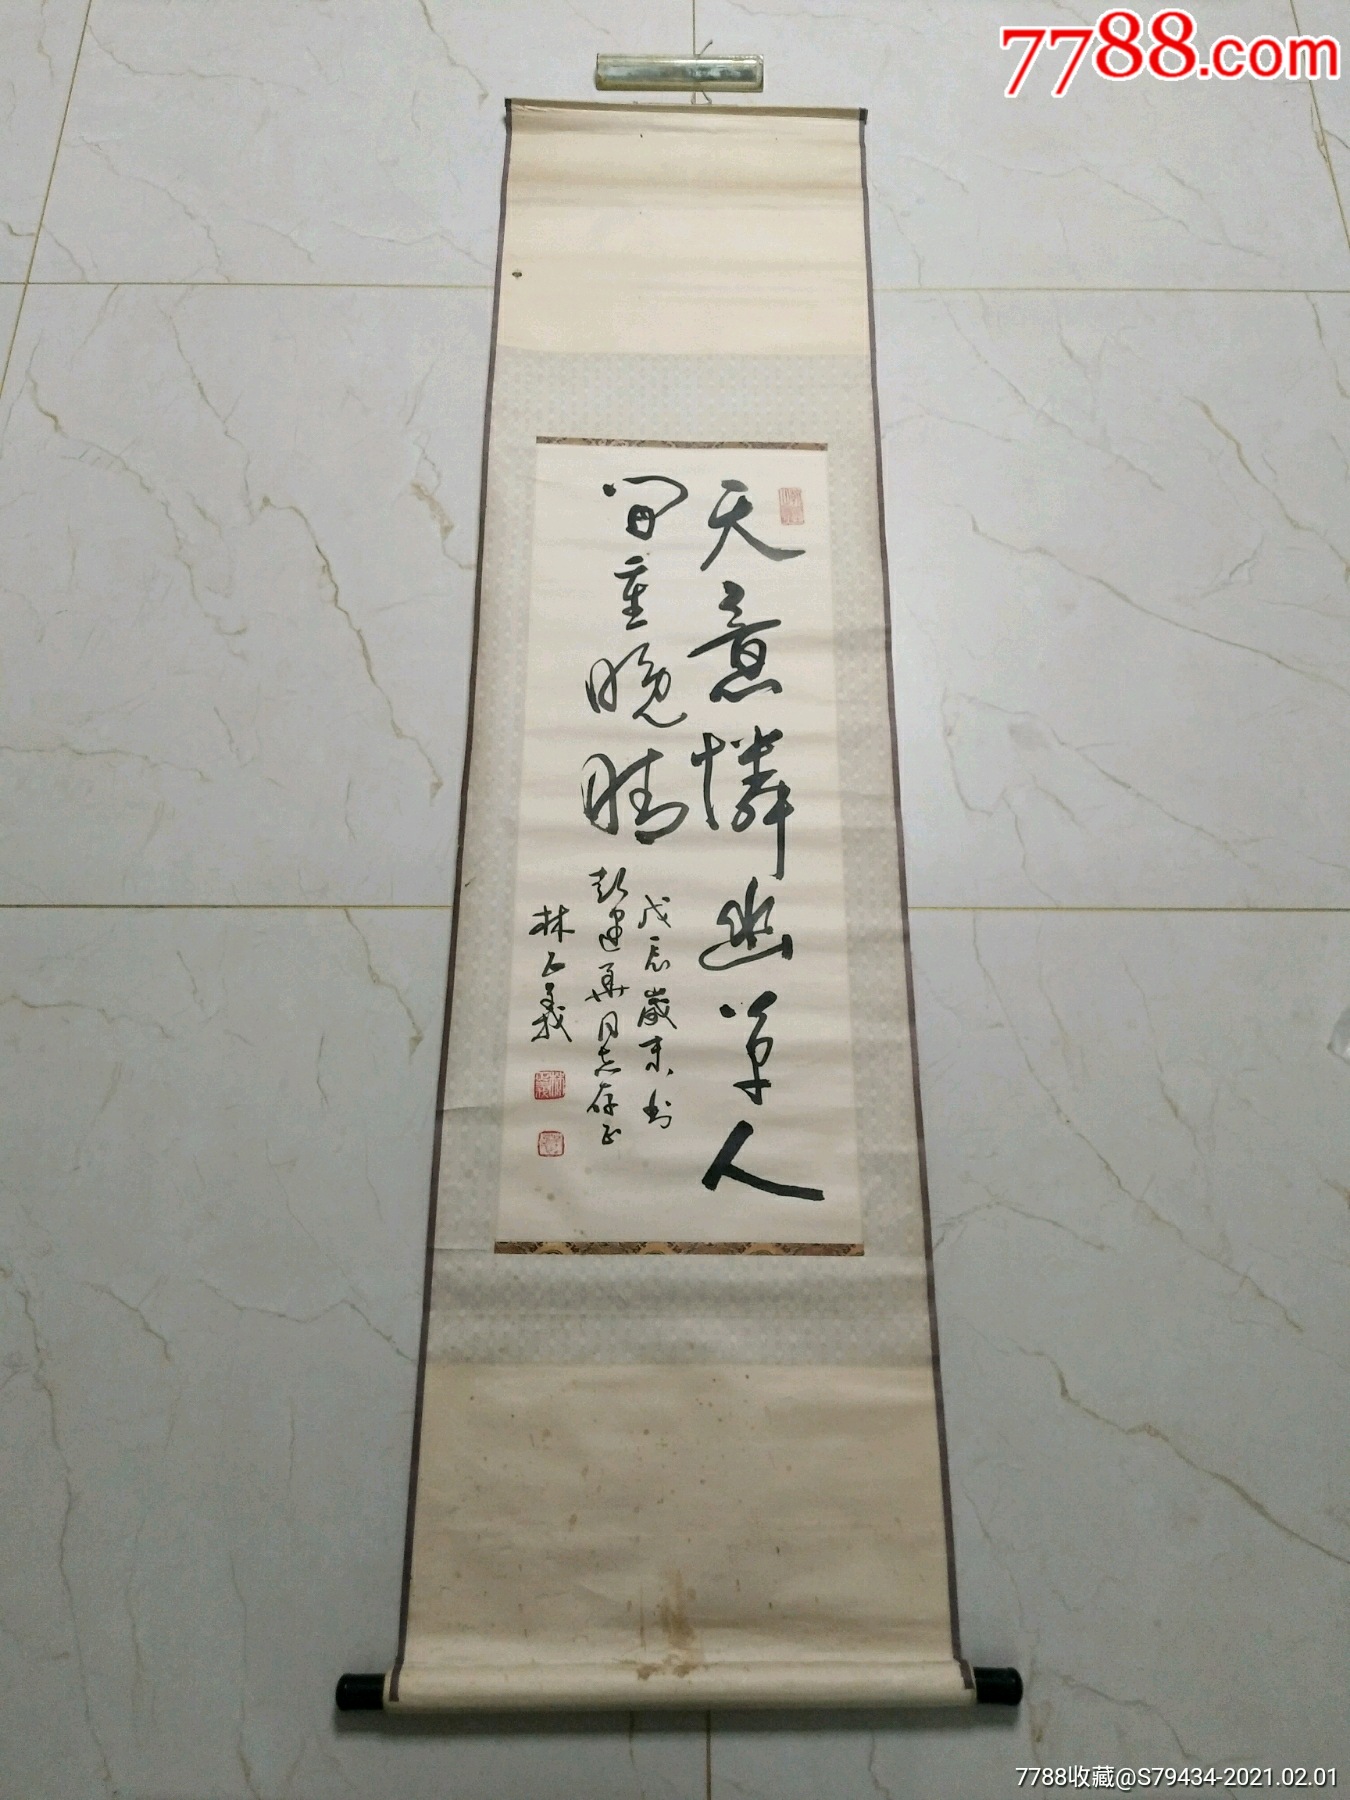 7788.com
天意憐幽草人
間重晚晴
戊辰歲末書
彭建華同志存正
林乙義
7788收藏@S79434-2021.02.01